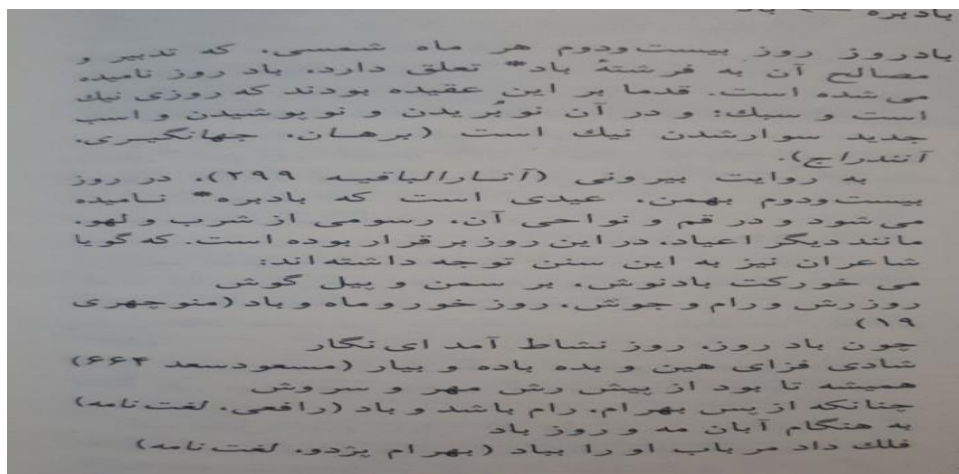 بادبره ← باد
بادروز روز بیست‌ودوم هر ماه شمسی، که تدبیر و
مصالح آن به فرشتهٔ باد* تعلق دارد، باد روز نامیده
می‌شده است. قدما بر این عقیده بودند که روزی نیك
است و سبك؛ و در آن نو بُریدن و نو پوشیدن و اسب
جدید سوارشدن نیك است (برهان، جهانگیری،
آنندراج).
به روایت بیرونی (آثارالباقیه ۲۹۹)، در روز
بیست‌ودوم بهمن، عیدی است که بادبره* نامیده
می‌شود و در قم و نواحی آن، رسومی از شرب و لهو،
مانند دیگر اعیاد، در این روز برقرار بوده است. که گویا
شاعران نیز به این سنن توجه داشته‌اند:
می خورکت بادنوش، بر سمن و پیل گوش
روزرش ورام و جوش، روز خور و ماه و باد (منوچهری
۱۹)
چون باد روز، روز نشاط آمد ای نگار
شادی فزای هین و بده باده و بیار (مسعودسعد ۶۶۴)
همیشه تا بود از پیش رش مهر و سروش
چنانکه از پس بهرام، رام باشد و باد (رافعی، لغت‌نامه)
به هنگام آبان مه و روز باد
فلك داد مر باب او را بباد (بهرام پژدو، لغت‌نامه)